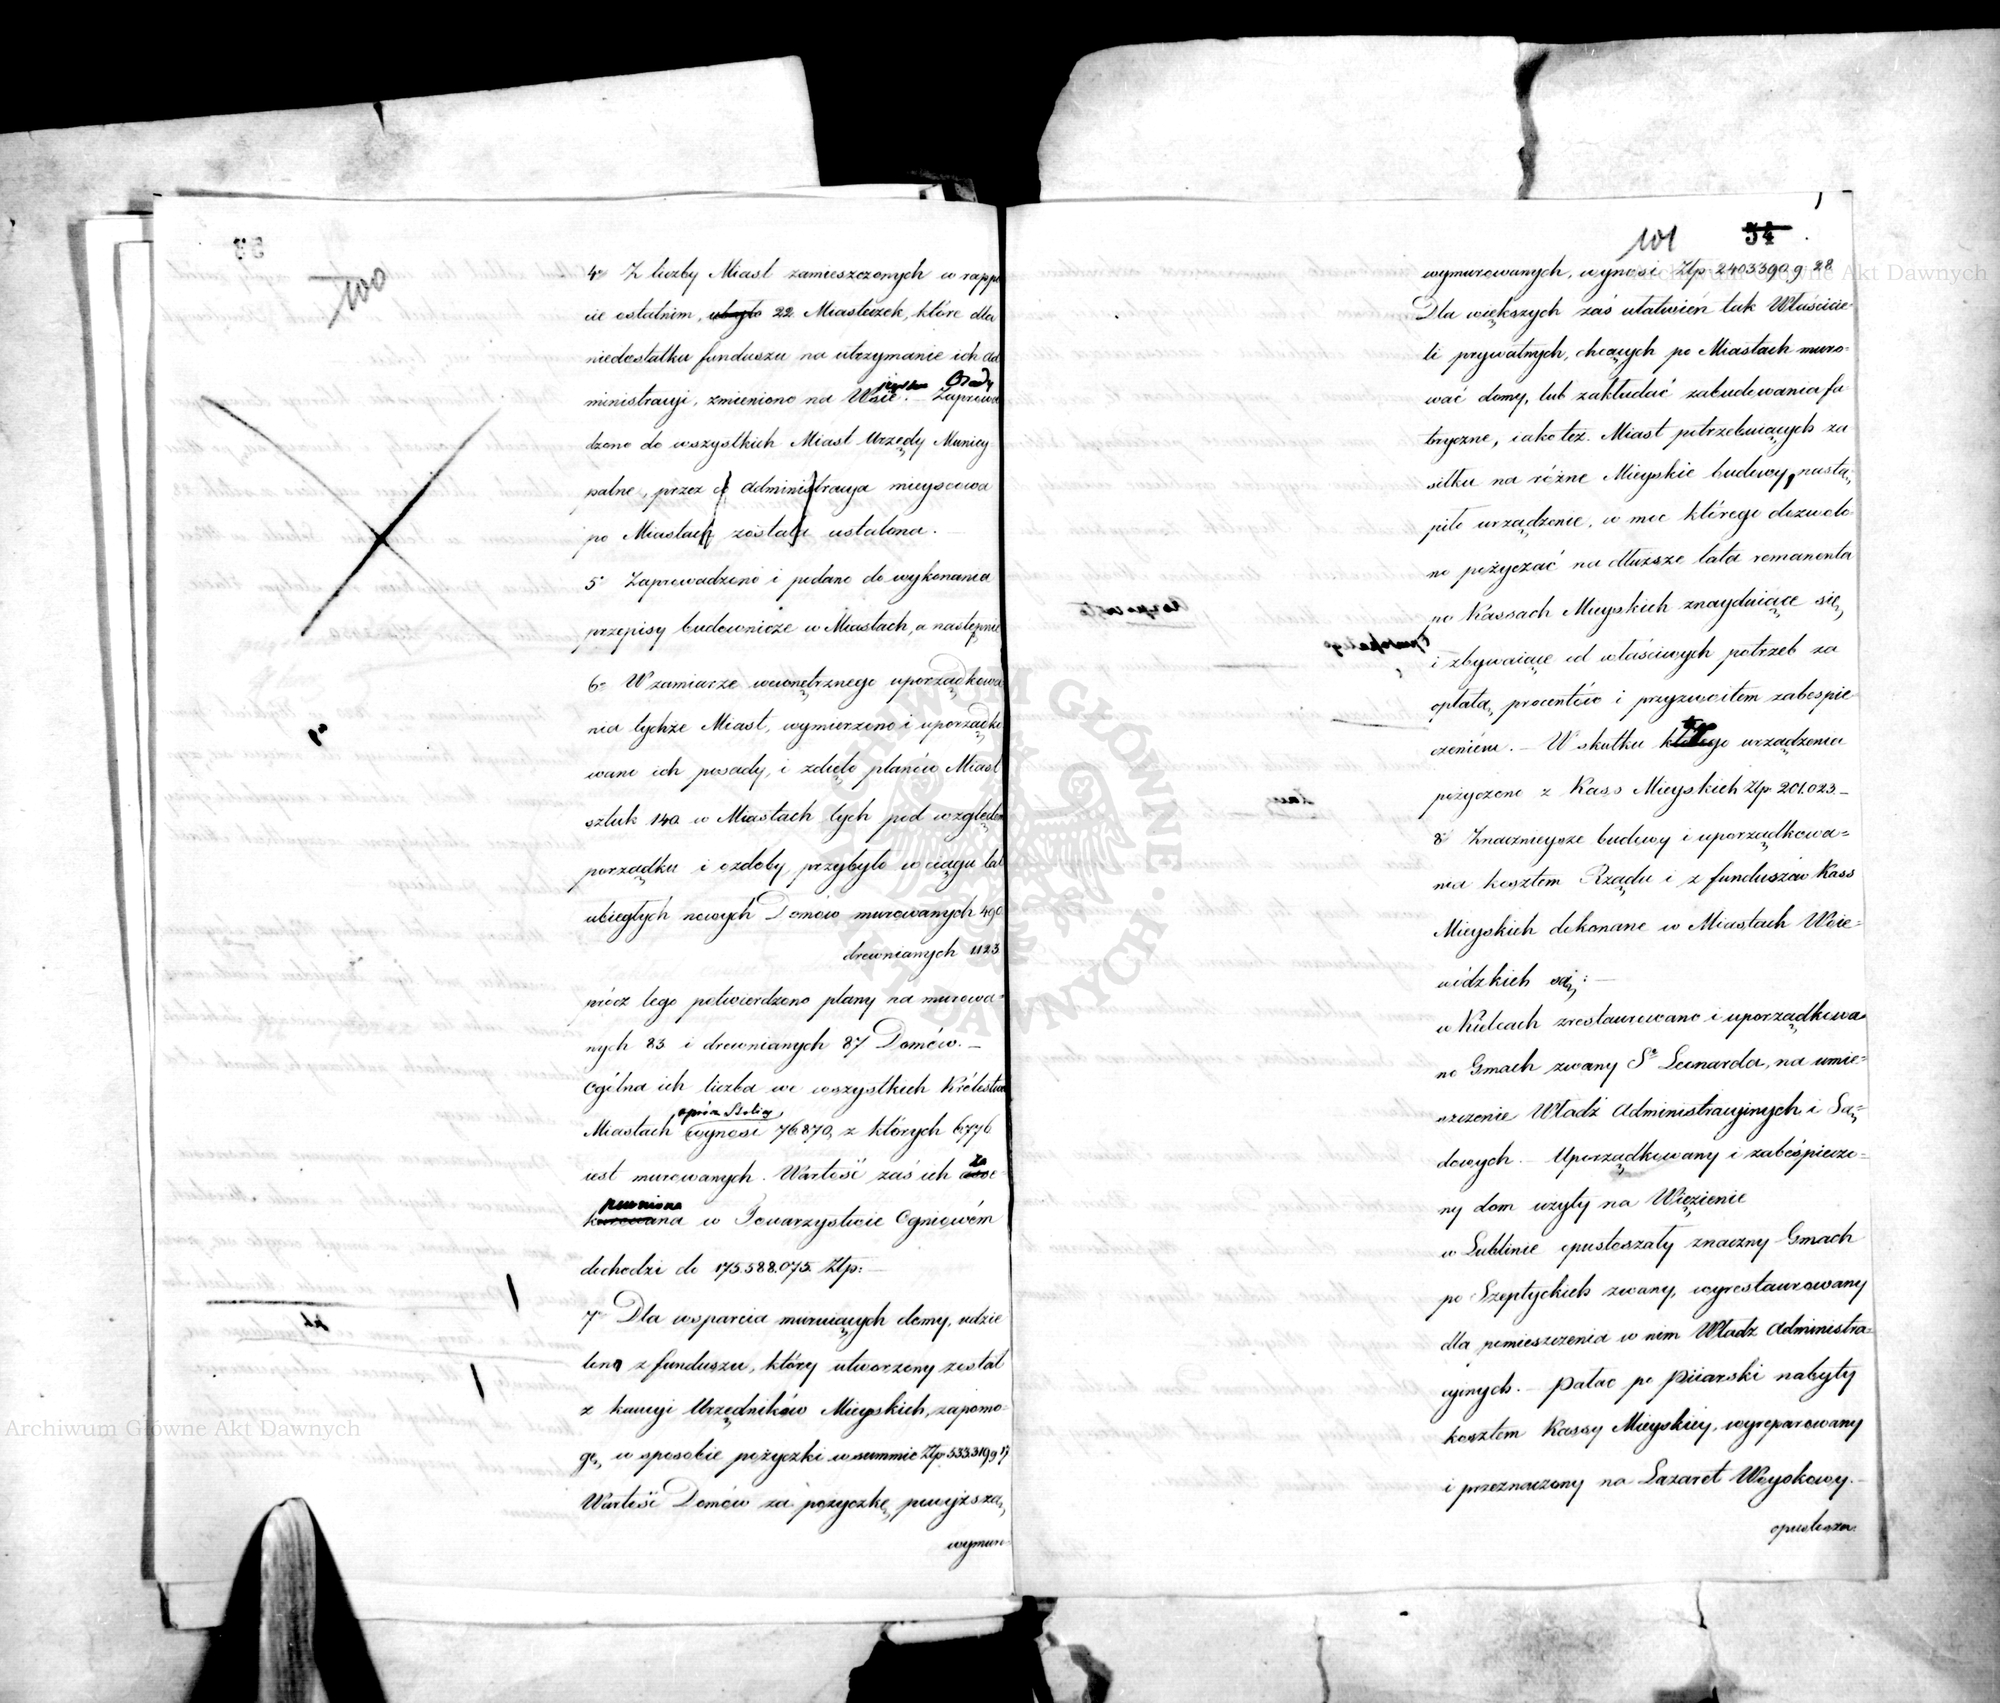 100
4o Z liczby Miast zamieszczonych w rappo
cie ostatnim, ubyło 22 Miasteczek, które dla
niedostatku funduszu na utrzymanie ich ad
ministracyi, zmieniono na Wsie. Zaprowa
dzono do wszystkich Miast Urzędy Municy
palne, przez c administracya mieyscowa
po Miastach została ustalona.
5o Zaprowadzono i podano do wykonania
przepisy budownicze w Miastach, a następnie
6o W zamiarze wewnętrznego uporządkowa
nia tychże Miast, wymierzono i uporządko
wano ich posady, i zdięto planów Miast
sztuk 140. w Miastach tych pod względem
porządku i ozdoby przybyło w ciągu lat
ubiegłych nowych Domów murowanych 490
drewnianych 1123
prócz tego potwierdzono plany na murowa=
nych 83 i drewnianych 87 Domów. —
Ogólna ich liczba we wszystkich Królestwa
oprócz Stolicy
Miastach wynosi 76.870, z których 6.776
iest murowanych. Wartość zaś ich asse
za
pewniona
kurowana w Towarzystwie Ogniowém
dochodzi do 175.588.075 Złp: —
7o Dla wsparcia muruiących domy, udzie
lono z funduszu, który utworzony został
z kaucyi Urzędników Mieyskich, zapomo-
gę, w sposobie pożyczki w summie Złp 533.319 g 17
Wartość Domów za pożyczkę powyższą,
wymuro-
101 54
wymurowanych, wynosi Złp 2403390 g 28
Dla większych zaś ułatwień tak Właścicie-
li prywatnych, chcących po Miastach muro-
wać domy, lub zakładać zabudowania fa
bryczne, iako też Miast potrzebuiących za
siłku na różne Mieyskie budowy, nastą-
piło urządzenie, w moc którego dozwolo
no pożyczać na dłuższe lata remanenta
po Kassach Mieyskich znayduiące się,
i zbywaiące od właściwych potrzeb za
opłatą procentów i przyzwoitem zabespie
czeniem. — W skutku którego urządzenia
pożyczono z Kass Mieyskich Złp 201.023 —
8o Znacznieysze budowy i uporządkowa=
nia kosztem Rządu i z funduszów Kass
Mieyskich dokonane w Miastach Woie=
wódzkich są: —
w Kielcach zrestaurowano i uporządkowa
no Gmach zwany So Leonarda, na umie=
szczenie Władz Administracyinych i Są=
dowych. — Uporządkowany i zabéspieczo-
ny dom użyty na Więzienie
w Lublinie opustoszały znaczny Gmach
po Szeptyckich zwany, wyrestaurowany
dla pomieszczenia w nim Władz Administra=
cyjnych. — Pałac po Piiarski nabyty
kosztem Kassy Mieyskiey, wyreparowany
i przeznaczony na Lazaret Woyskowy. —
opustosza-
Archiwum Główne Akt Dawnych
Archiwum Główne Akt Dawnych
ARCHIWUM GŁÓWNE AKT DAWNYCH